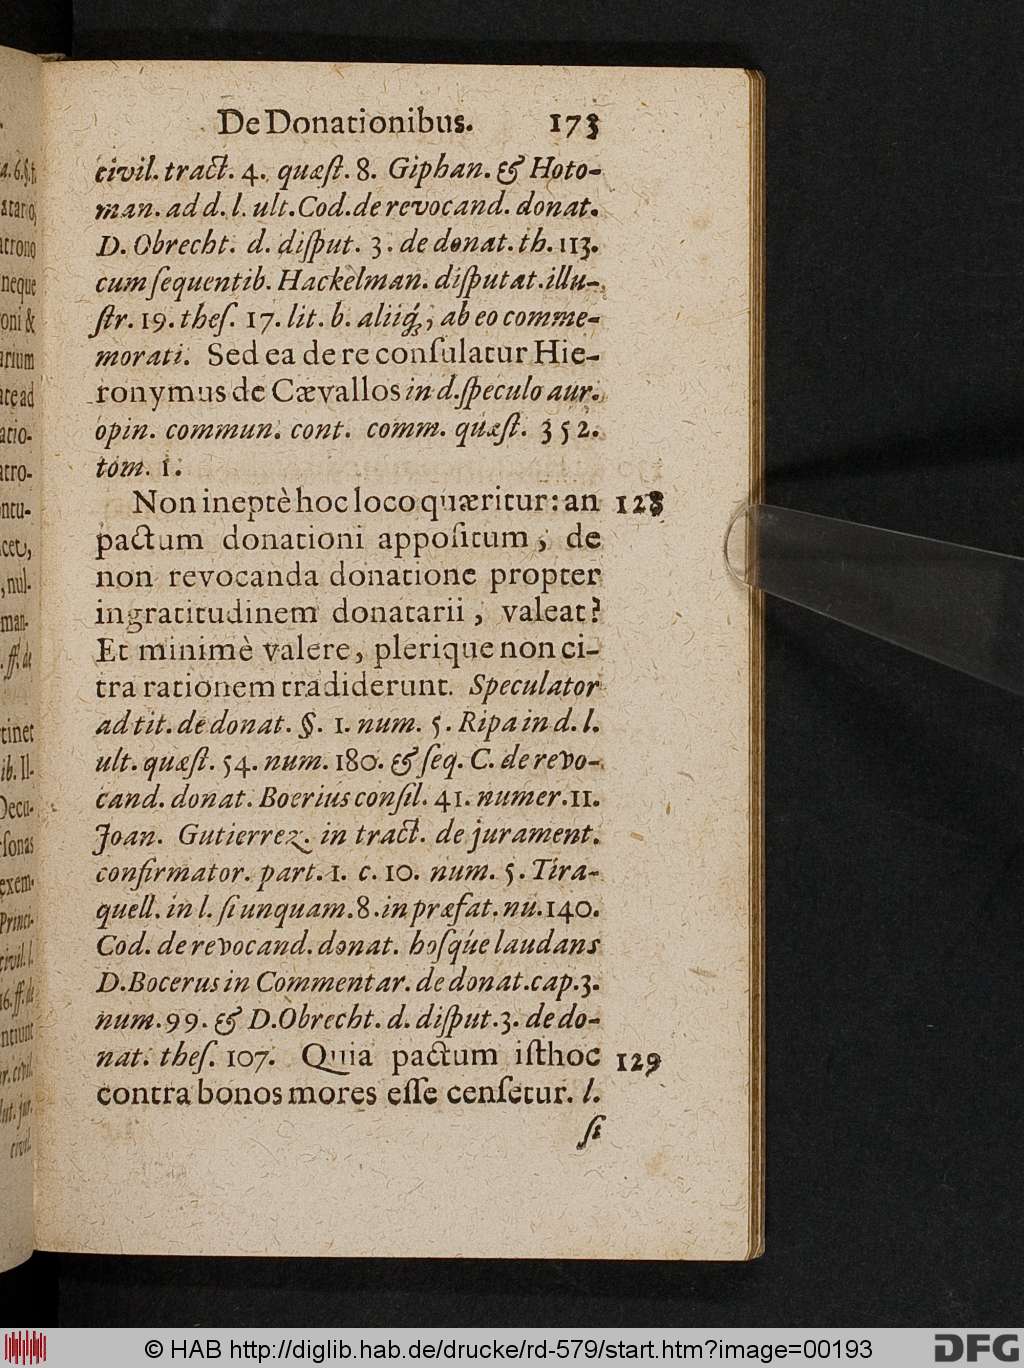 De Donationibus. 173
civil. tract. 4. quæſt. 8. Giphan. & Hoto-
man. ad d. l. ult. Cod. de revocand. donat.
D. Obrecht. d. diſput. 3. de donat. th. 113.
cum ſequentib. Hackelman. diſputat. illu-
ſtr. 19. theſ. 17. lit. b. aliiq́;, ab eo comme-
morati. Sed ea de re conſulatur Hie-
ronymus de Cævallos in d. ſpeculo aur.
opin. commun. cont. comm. quæſt. 352.
tom. 1.
Non ineptè hoc loco quæritur: an 128
pactum donationi appoſitum, de
non revocanda donatione propter
ingratitudinem donatarii, valeat?
Et minimè valere, plerique non ci-
tra rationem tradiderunt. Speculator
ad tit. de donat. §. 1. num. 5. Ripa in d. l.
ult. quæſt. 54. num. 180. & ſeq. C. de revo-
cand. donat. Boerius conſil. 41. numer. 11.
Joan. Gutierrez. in tract. de jurament.
confirmator. part. 1. c. 10. num. 5. Tira-
quell. in l. ſi unquam. 8. in præfat. nu. 140.
Cod. de revocand. donat. hoſque laudans
D. Bocerus in Commentar. de donat. cap. 3.
num. 99. & D. Obrecht. d. diſput. 3. de do-
nat. theſ. 107. Quia pactum iſthoc 129
contra bonos mores eſſe cenſetur. l.
ſi
© HAB http://diglib.hab.de/drucke/rd-579/start.htm?image=00193
DFG